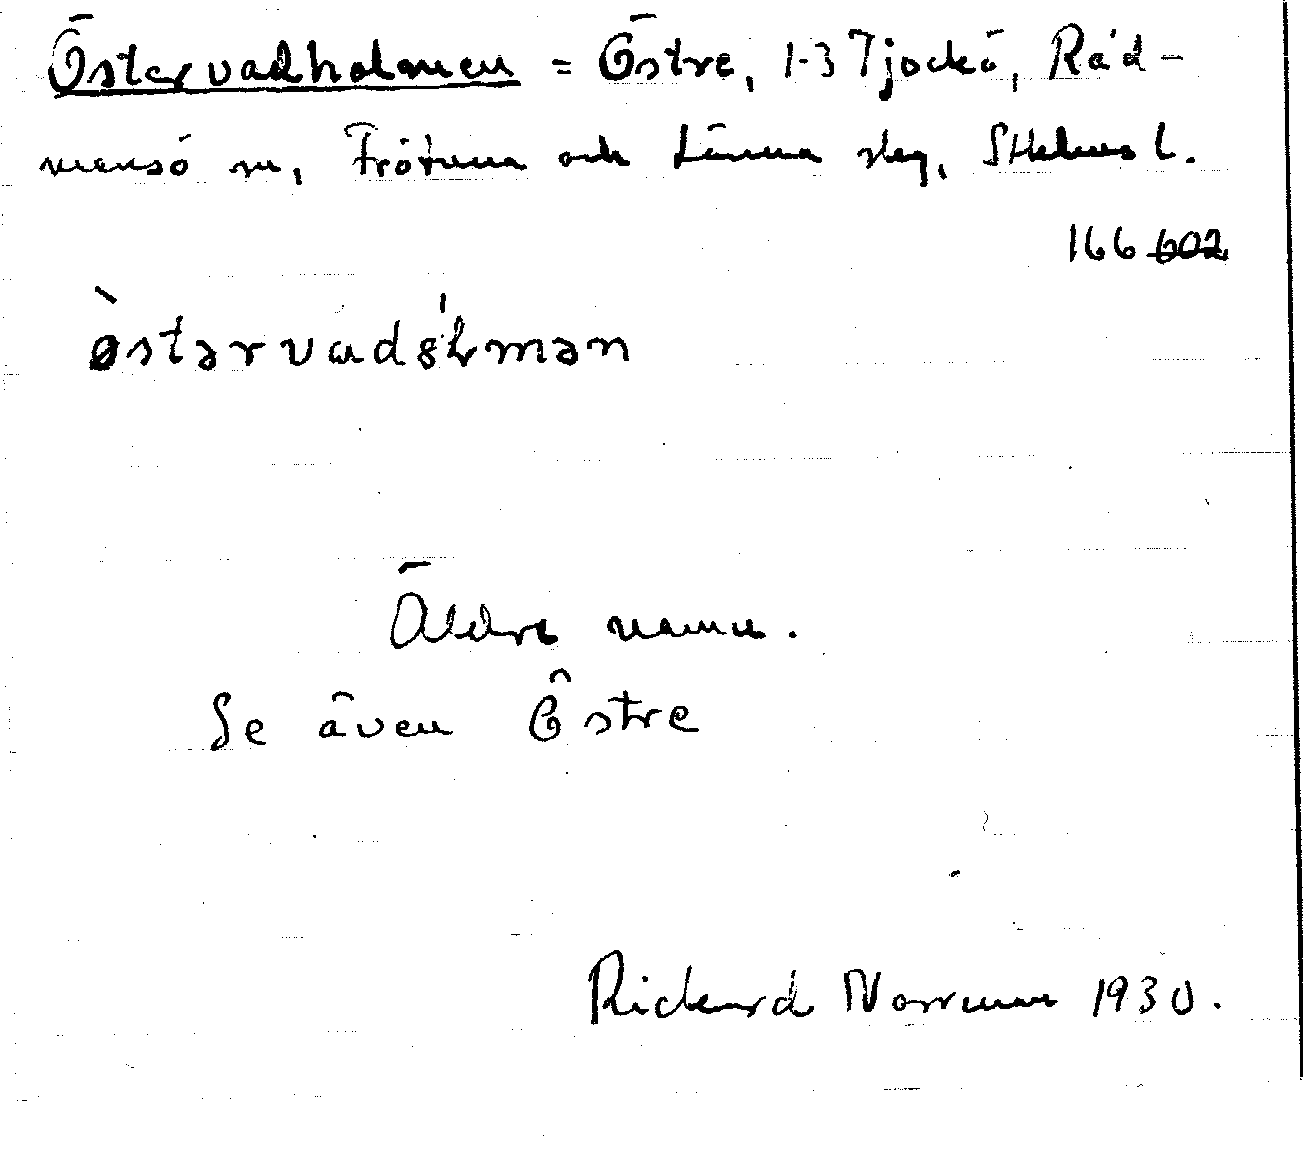 Östervadholmen = Östre, 1-3 Tjockö, Råd-
mansö sn, Frötuna och Länna slg, Sthlms l.
166 602
òstərvadsɧ́mən
Äldre namn.
Se även Östre
Rickard Norrman 1930.